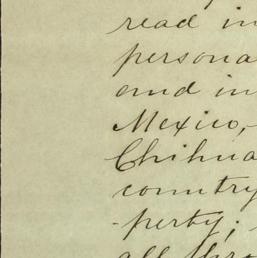 read in
persona
and in
Mexico,
Chihua
country
-perty;
all thro